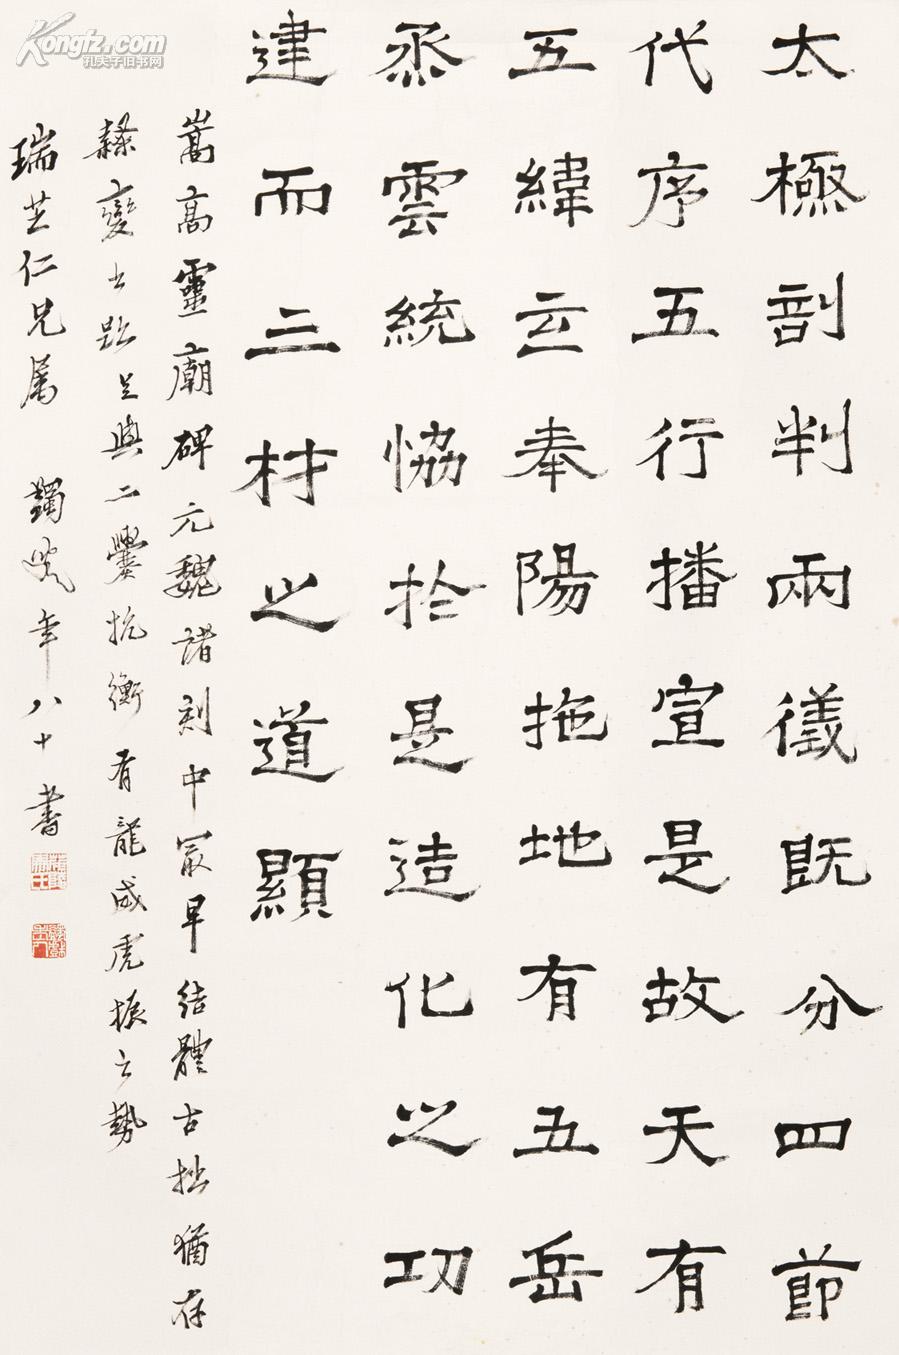 太極剖判兩儀既分四節
代序五行播宣是故天有
五緯主奉陽拖地地有五岳
烝雲統恊於是造化之功
建而三材之道顯
嵩高靈廟碑元魏諸刻中冣早結體古拙猶存
隸變之跡足與二爨抗衡有龍威虎振之勢
瑞芝仁兄属 蠲叟年八十書
Kongfz.com
孔夫子旧书网